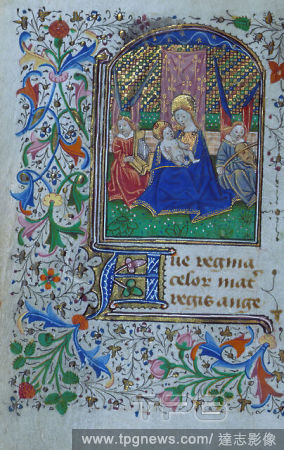 Aue regina
celor mat͛
regis ange
TPG
www.tpgnews.com/ 達志影像